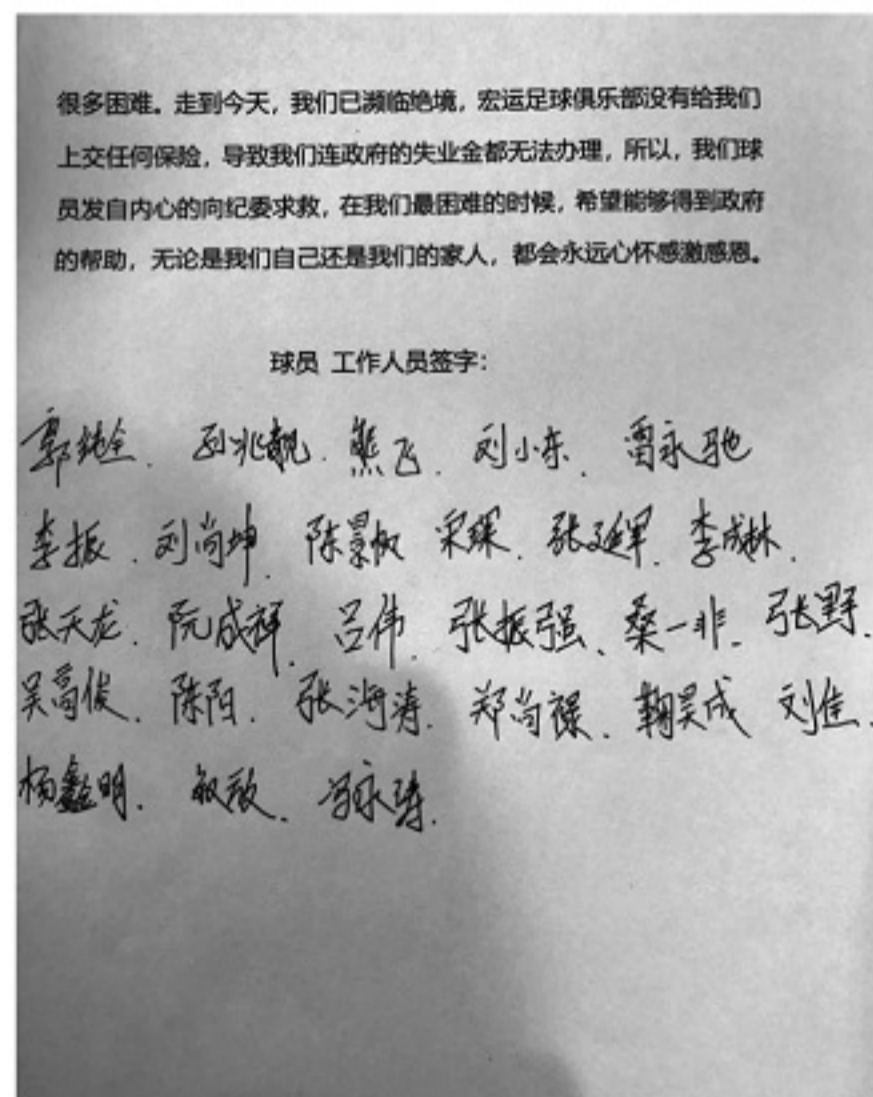 很多困难。走到今天，我们已濒临绝境，宏运足球俱乐部没有给我们
上交任何保险，导致我们连政府的失业金都无法办理，所以，我们球
员发自内心的向纪委求救，在我们最困难的时候，希望能够得到政府
的帮助，无论是我们自己还是我们的家人，都会永远心怀感激感恩。
球员 工作人员签字：
孙兆靓. 熊飞. 刘小东. 雷永驰
李振. 刘尚坤. 陈景帆 宋琛. 张延军. 李成林.
张天龙. 阮成祥. 吕伟. 张振强、桑一非. 张野.
陈阳. 张海涛. 郑尚禄. 鞠昊成 刘佳.
杨鑫明. 冯永涛.